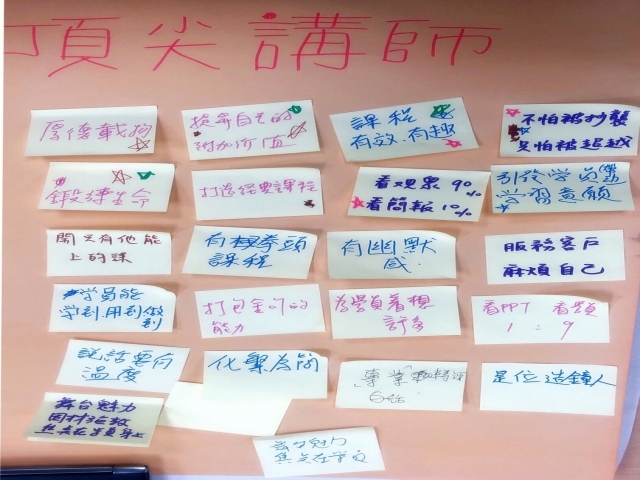 頂尖講師
厚德載物
提昇自己的
附加價值
課程
有效.有趣
不怕被抄襲
只怕被超越
鍛鍊生命
打造經典課程
看观眾 90%
看簡報 10%
引發学員
学習意願
開只有他能
上的課
有拳頭
課程
有幽默
感
服務客戶
麻煩自己
学員能
学到.用到.做到
打包金句的
能力
為學員著想
許多
看PPT 看學員
1 : 9
說話要有
溫度
化繁為簡
專業
是位造鐘人
舞台魅力
因材施教
焦点在学員身上
舞台魅力
焦点在学員